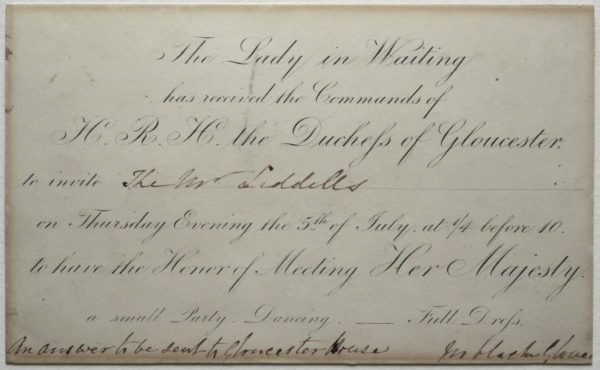 The Lady in Waiting
has received the Commands of
H. R. H. the Duchefs of Gloucester.
to invite The Mr Liddells
on Thursday Evening the 5th of July, at 1/4 before 10.
to have the Honor of Meeting Her Majesty.
a small Party. Dancing. — Full Drefs.
An answer to be sent to Gloucester House